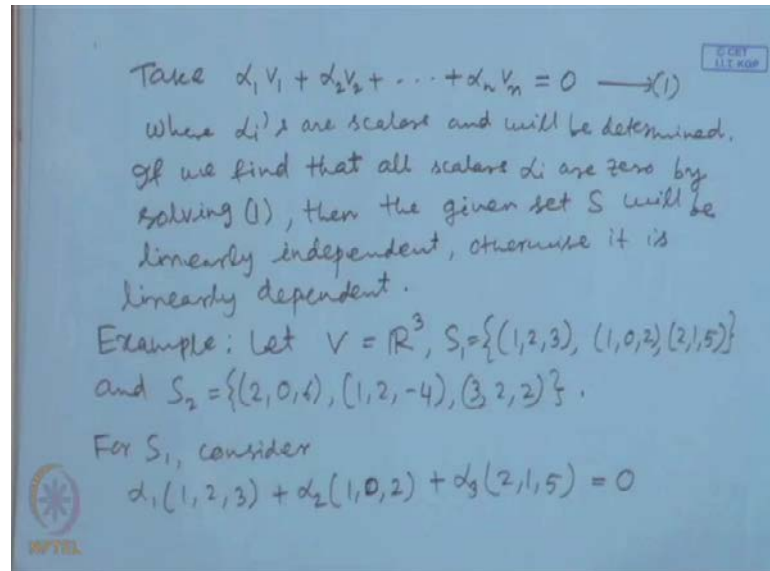 © CET
I.I.T. KGP
Take α₁v₁ + α₂v₂ + ... + αₙvₙ = 0 ⟶(1)
where αᵢ's are scalars and will be determined.
If we find that all scalars αᵢ are zero by
solving (1), then the given set S will be
linearly independent, otherwise it is
linearly dependent.
Example: Let V = ℝ³, S₁={(1,2,3), (1,0,2), (2,1,5)}
and S₂ = {(2,0,6), (1,2,-4), (3,2,2)}.
For S₁, consider
α₁(1,2,3) + α₂(1,0,2) + α₃(2,1,5) = 0
NPTEL